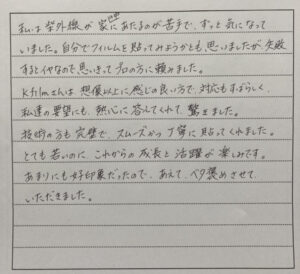 私は紫外線が家にあたるのが苦手で、ずっと気になって
いました。自分でフィルムを貼ってみようかとも思いましたが、失敗
するとイヤなので思いきってプロの方に頼みました。
Kfilmさんは想像以上に感じの良い方で、対応もすばらしく、
私達の要望にも、熱心に答えてくれて驚きました。
技術の方も完璧で、スムーズかつ丁寧に貼ってくれました。
とても若いのに、これからの成長と活躍が楽しみです。
あまりにも好印象だったので、あえて、ベタ褒めさせて
いただきました。